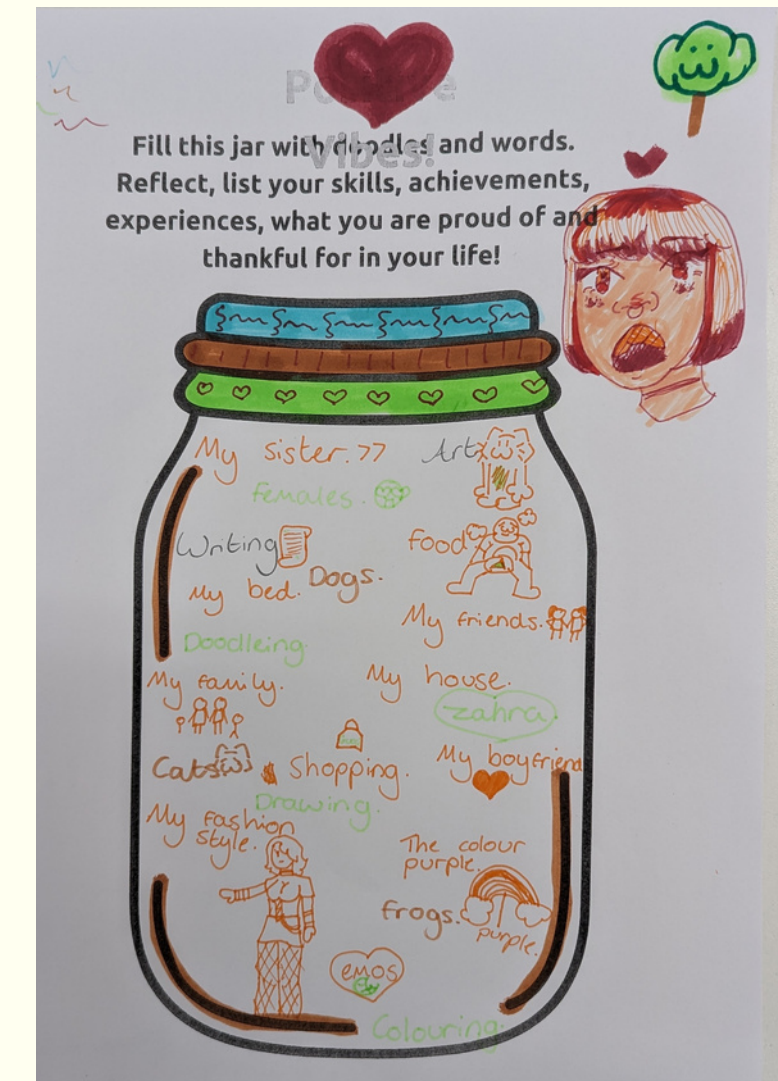 Positive
Vibes!
Fill this jar with doodles and words.
Reflect, list your skills, achievements,
experiences, what you are proud of and
thankful for in your life!
My sister. >>
Art
females.
Writing
food
Dogs.
My bed.
My friends.
Doodleing.
My family.
My house.
zahra
Cats
Shopping.
My boyfriend
Drawing.
My fashion
style.
The colour
purple.
frogs.
purple.
emos
Colouring.